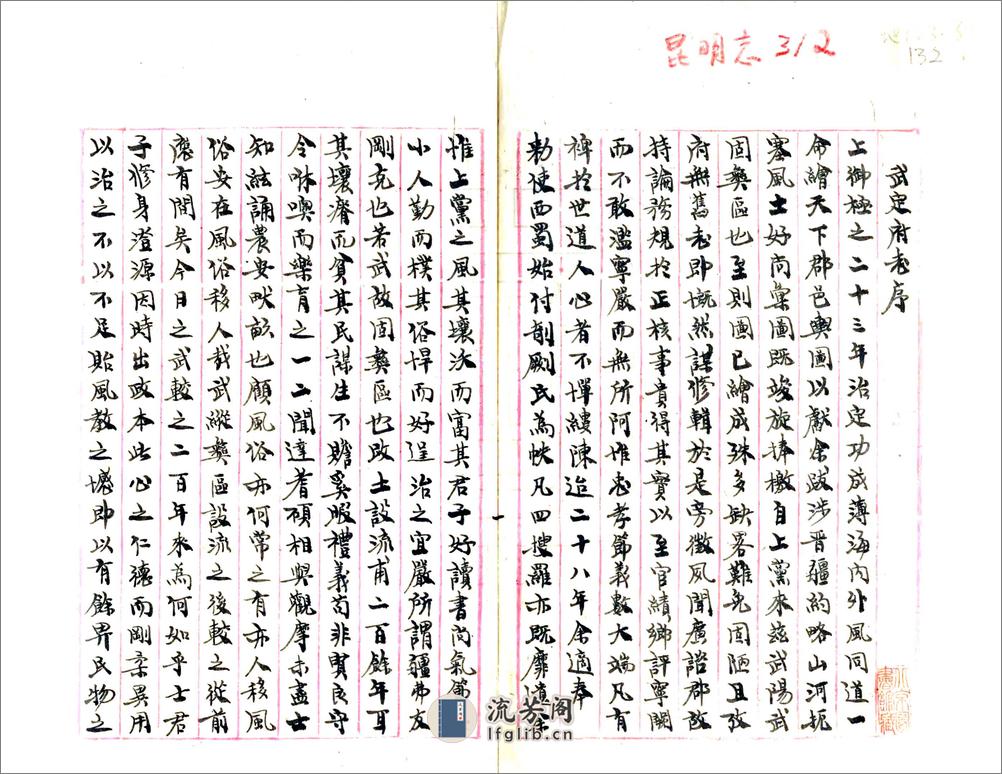 昆明志 312
132
武定府志序
上御極之二十三年治定功成薄海內外風同道一
命繪天下郡邑輿圖以獻余跋涉晉疆約略山河扼
塞風土好尚彙圖既竣旋捧檄自上黨來茲武陽武
固彝區也至則圖已繪成殊多缺畧難免固陋且攷
府無舊志即慨然謀修輯於是旁徵夙聞廣諮郡故
持論務規於正核事貴得其實以至官績鄉評寧闕
而不敢濫寧嚴而無所阿惟忠孝節義數大端凡有
裨於世道人心者不憚縷陳迨二十八年余適奉
勅使西蜀始付剞劂氏為帙凡四搜羅亦既靡遺
惟上黨之風其壤沃而富其君子好讀書尚氣節
小人勤而樸其俗悍而好逞治之宜嚴所謂疆弗友
剛克也若武故固彝區也改土設流甫二百餘年耳
其壤瘠而貧其民謀生不贍奚暇禮義苟非賢良守
令咻噢而樂育之一二聞達耆碩相與觀摩未盡士
知絃誦農安畎畝也顧風俗亦何常之有亦人移風
俗安在風俗移人哉武縱彝區設流之後較之從前
有間矣今日之武較之二百年來為何如乎士君
子修身澄源因時出政本此心之仁德而剛柔異用
以治之不以不足貽風教之憾即以有餘畀民物之
流芳阁
lfglib.cn